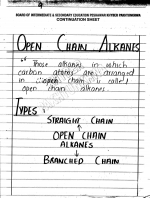 9
BOARD OF INTERMEDIATE & SECONDARY EDUCATION PESHAWAR KHYBER PAKHTUNKHWA
CONTINUATION SHEET
OPEN CHAIN ALKANES
"Those alkanes in which
carbon atoms are arranged
in open chain is called
open chain alkanes.
TYPES:
STRAIGHT CHAIN
OPEN CHAIN
ALKANES
BRANCHED CHAIN